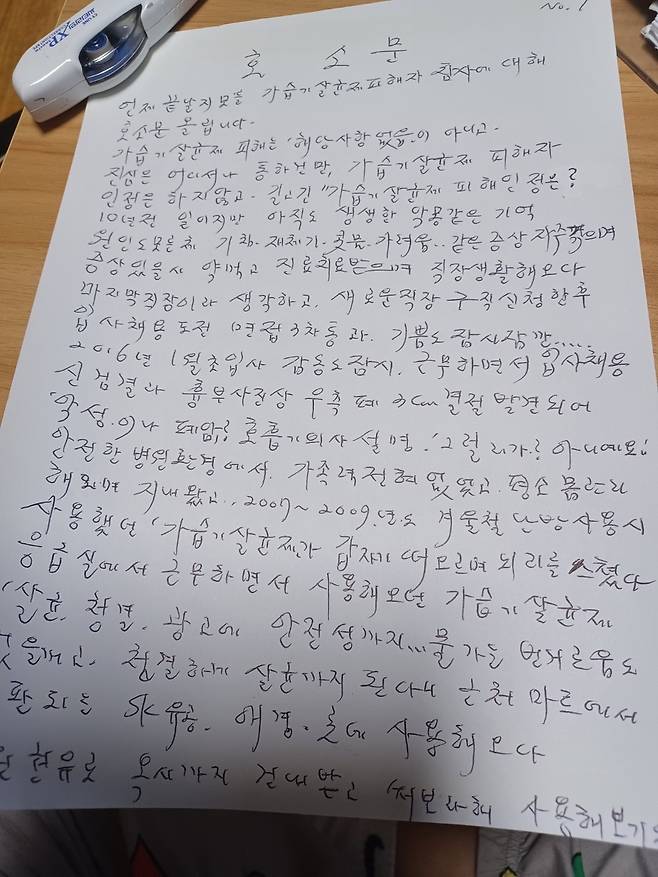 No. 1
호 소 문
언제 끝날지모를 가습기살균제피해자 참사에 대해
호소문 올립니다.
가습기 살균제 피해는 '해당사항없음'이 아니고.
진심은 어디서나 통하건만, 가습기살균제 피해자
인정은 하지않고. 길고긴 "가습기살균제 피해인정은?
10년전 일이지만 아직도 생생한 악몽같은 기억
원인도모른체 기침.재채기.콧물.가려움.. 같은 증상 자주겪으며
증상있을시 약먹고 진료치료받으며 직장생활해오다
마지막직장이라 생각하고, 새로운직장 구직신청한후
입사채용도전 면접3차통과. 기쁨도 잠시잠깐.....
2016년 1월초입사 감동도잠시. 근무하면서 입사채용
신검결과 흉부사진상 우측 폐 3cm 결절 발견되어
악성.이나 폐암! 호흡기의사 설명. '그럴리가! 아니예요!!
안전한 병원환경에서. 가족력전혀 없었고. 평소 몸관리
해오며 지내왔고.. 2007~2009.년도 겨울철 난방사용시
사용했던 '가습기살균제'가 갑자기 떠오르며 뇌리를 스쳤다
응급실에서 근무하면서 사용해오던 가습기살균제
'살균. 청결. 광고에 안전성까지... 물 가는 번거로움도
청결하게 살균까지 된다니 근처 마트에서
판매되는 SK 유공. 애경. 로 사용해오다
옥시까지 건네받고 써보라해 사용해보기